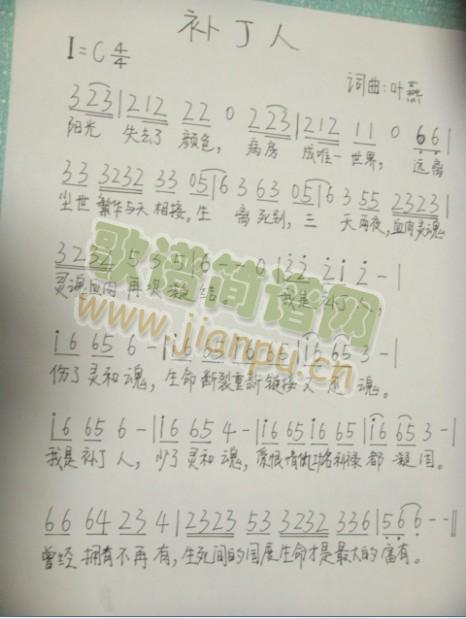 补丁人
1=C 4/4
词曲:叶燕
3 23 | 212 22 0 223 | 212 11 0 66 |
阳光 失去了 颜色, 病房 成唯一世界, 远离
33 3232 33 05 | 6 3 63 05 | 6 3 55 2323 |
尘世 繁华与天相接。生 离死别, 三 天两夜, 血肉灵魂
3234 5 3 5 | 6 - - 0 | 22 212 - |
灵魂血肉 再次凝结 我是补丁人,
i6 65 6 - | i6 65 i6 65 | i6 65 3 - |
伤了灵和魂, 生命断裂重新链接 魂。
i6 65 6 - | i6 65 4 - | i6 65 i6 65 | i6 65 3 - |
我是补丁人, 少了灵和魂, 爱恨情仇功名利禄都 凝固。
66 64 23 4 | 2323 53 3232 336 | 5 6 6 - - ||
曾经 拥有不再有, 生死间的国度生命才是最大的富有。
歌谱简谱网
www.jianpu.cn